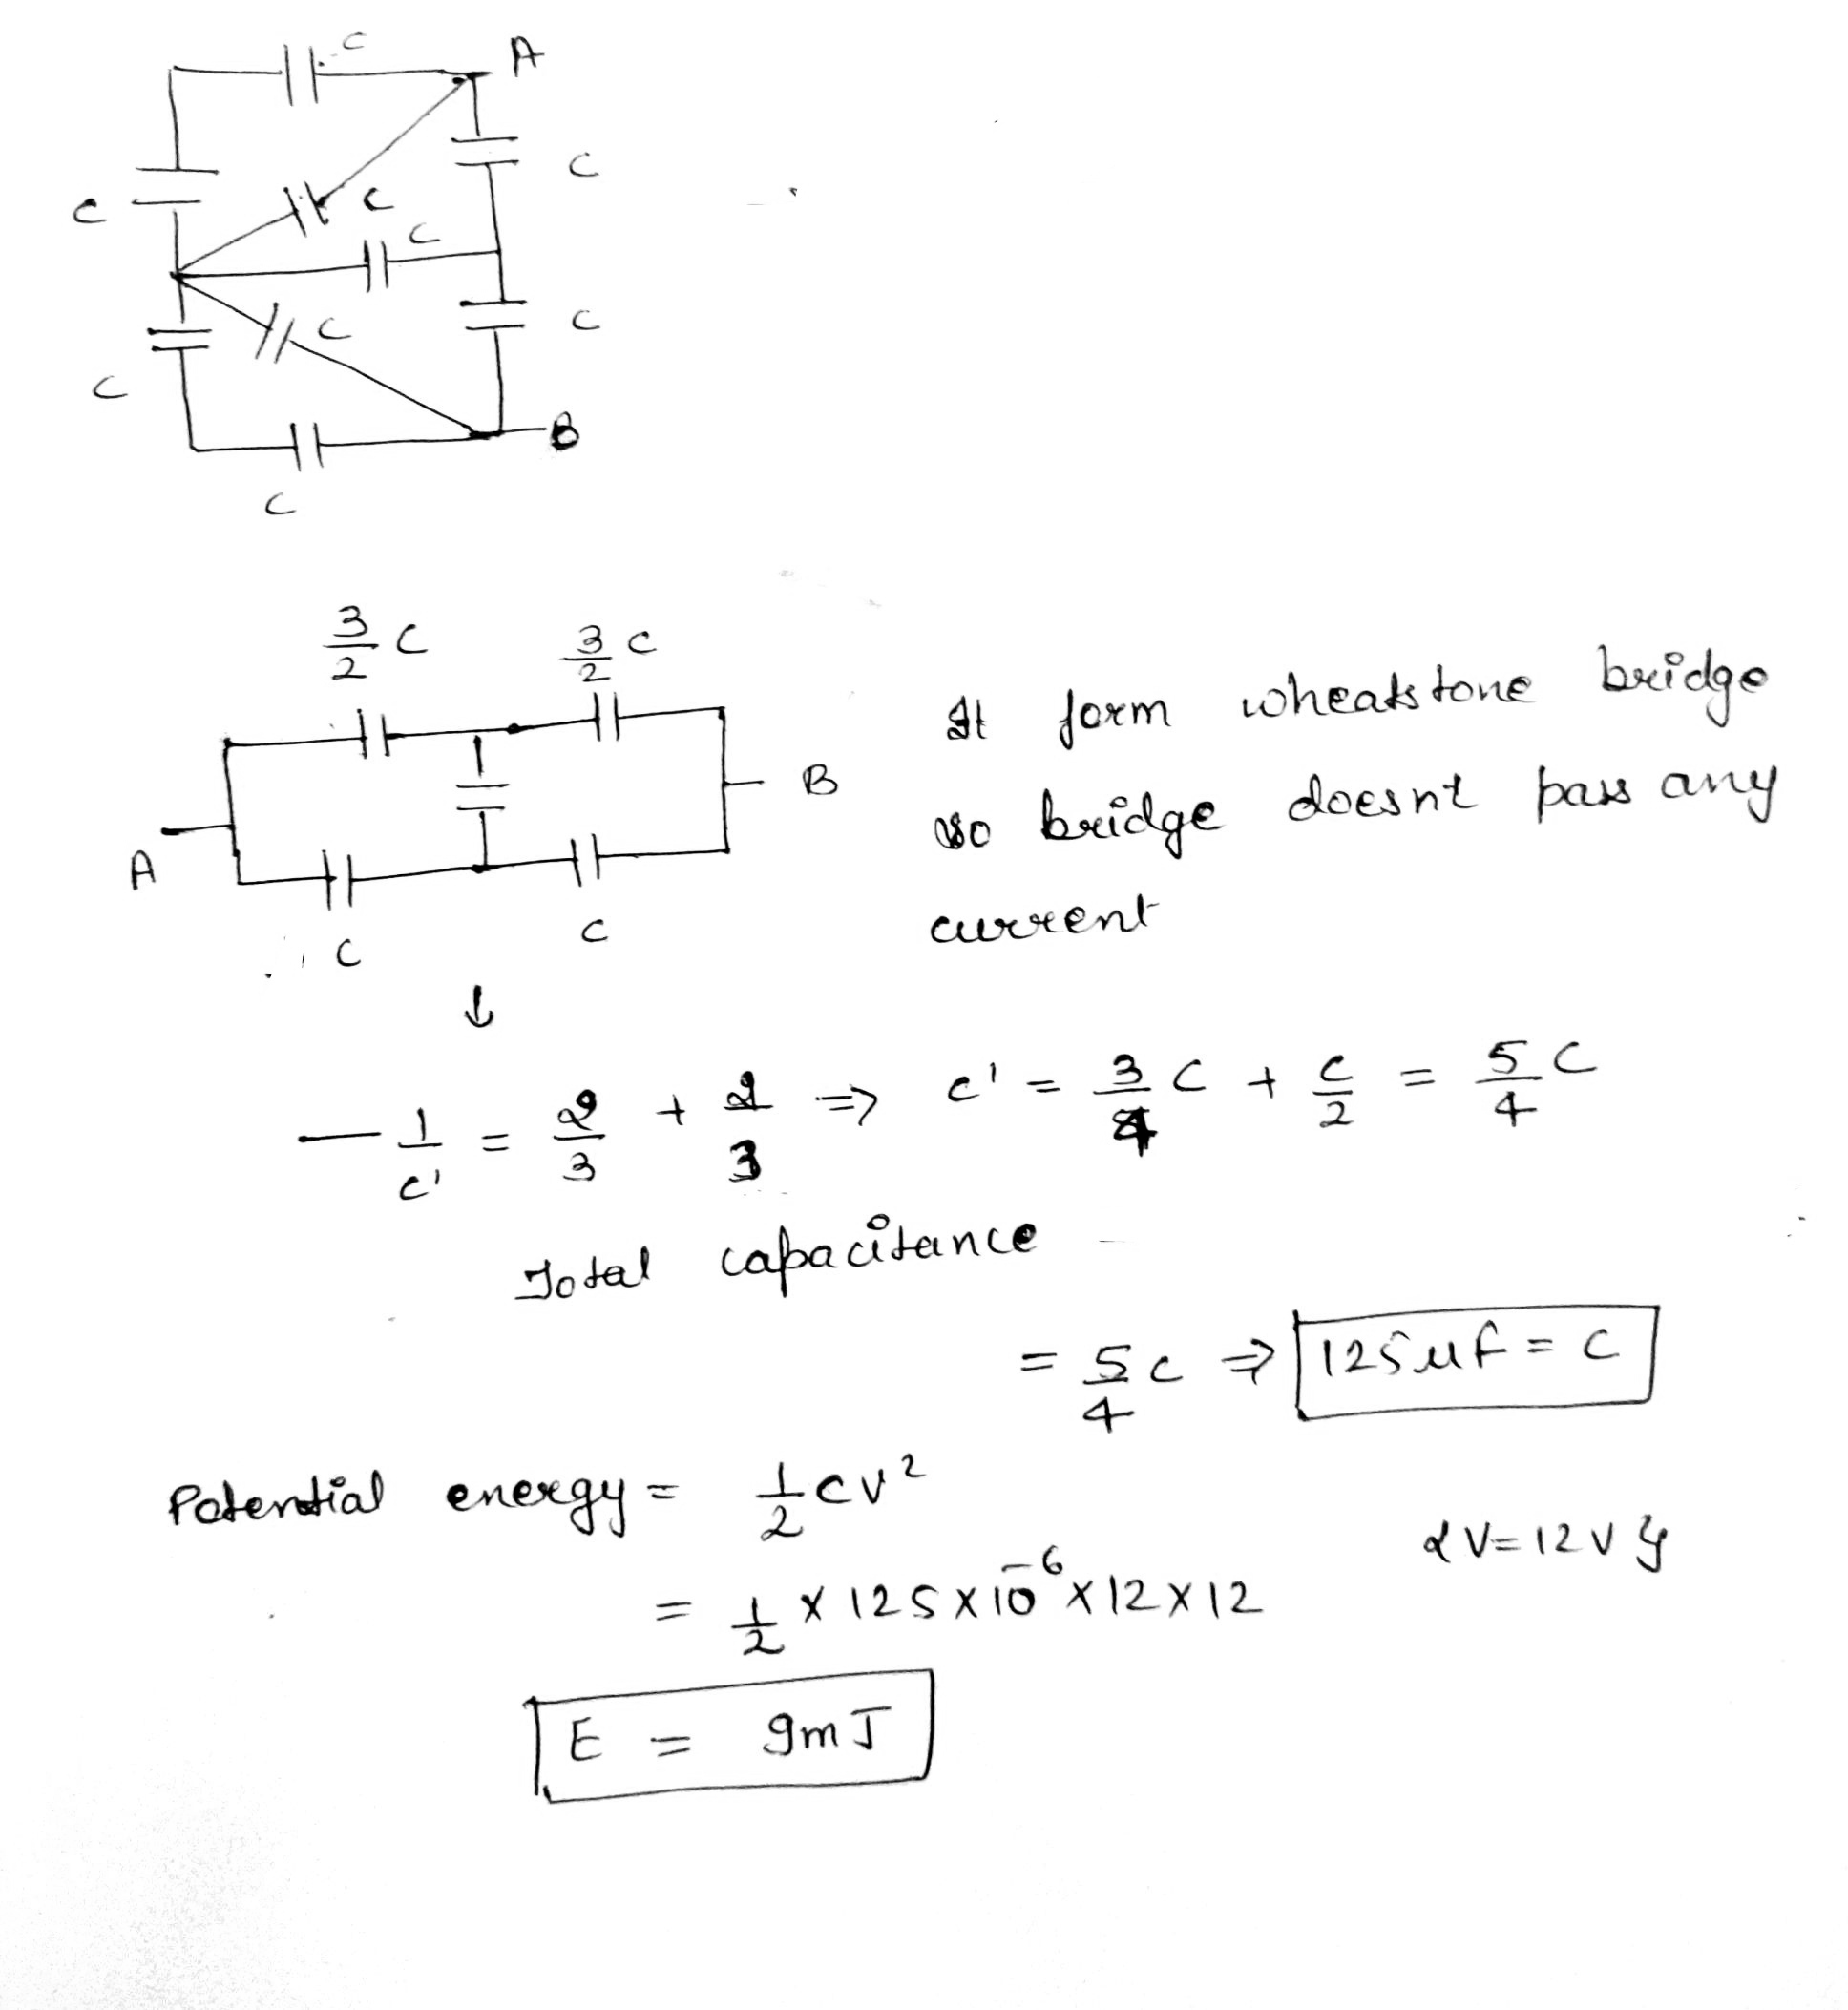 C
A
C
C
C
C
C
C
C
B
C
3/2 C
3/2 C
It form wheatstone bridge
so bridge doesnt pass any
current
A
B
C
C
↓
— 1/c' = 2/3 + 2/3 ⇒ c' = 3/4 C + C/2 = 5/4 C
Total capacitance
= 5/4 C ⇒ 125 μf = C
Potential energy = 1/2 CV²
{V=12V}
= 1/2 × 125 × 10⁻⁶ × 12 × 12
E = 9mJ